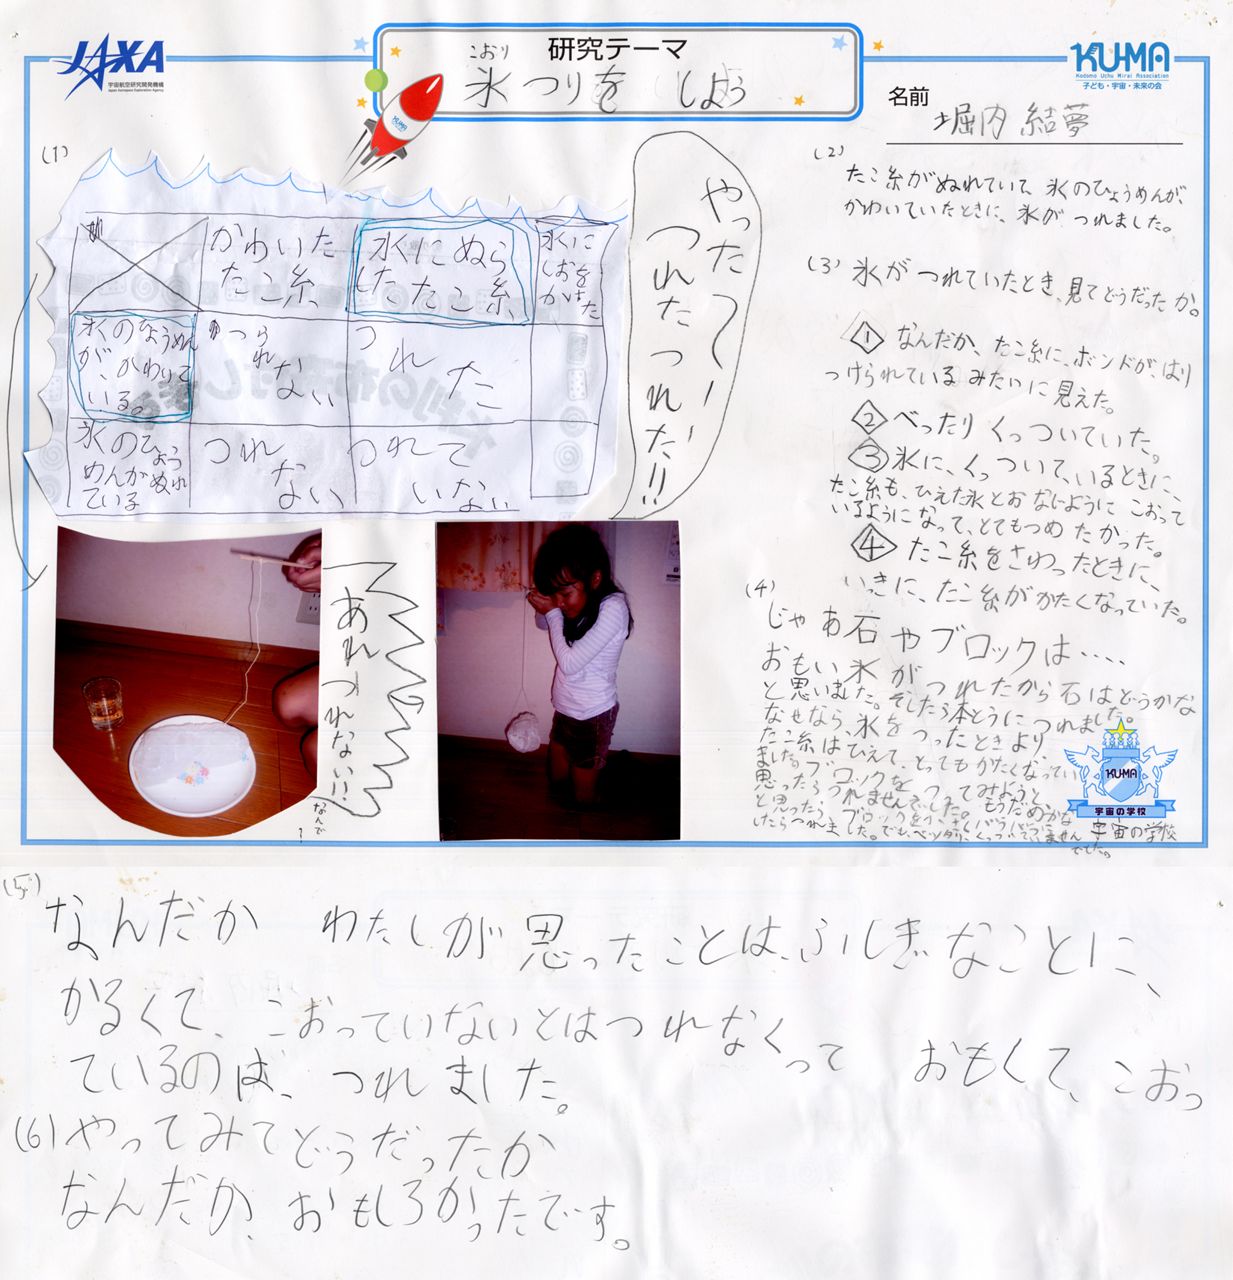 JAXA
宇宙航空研究開発機構
Japan Aerospace Exploration Agency
研究テーマ
こおり
氷つりを しよう
KUMA
KUMA
Kodomo Uchu Mirai Association
子ども・宇宙・未来の会
名前
堀内 結夢
(1)
かわいた
たこ糸
氷にぬら
したたこ糸
氷に
しおを
かけた
氷のひょうめん
が、かわいて
いる。
つられ
ない
つ
れ
た
氷のひょう
めんがぬれ
ている
つれ
ない
つれて
いない
やったぁー
つれたつれた!!
あれつれない!!
なんで?
(2)
たこ糸がぬれていて、氷のひょうめんが、
かわいていたときに、氷がつれました。
(3) 氷がつれていたとき、見てどうだったか。
1 なんだか、たこ糸に、ボンドが、はり
つけられているみたいに見えた。
2 べったりくっついていた。
3 氷に、くっついて、いるときに、
たこ糸も、ひえた氷とおなじようにこおって
いるようになって、とてもつめたかった。
4 たこ糸をさわったときに、
いっきに、たこ糸がかたくなっていた。
(4)
じゃあ石やブロックは‥‥
おもい氷がつれたから石はどうかな
と思いました。そしたら本とうにつれました。
なせなら、氷をつったときより
たこ糸はひえて、とってもかたくなってい
ました。ブロックをつってみようと
思ったらつれませんでした。もうだめかな
と思ったら、ブロックを
したらつれました。でも、ベッタリくっついていません
でした。
KUMA
宇宙の学校
宇宙の学校
(5)
なんだか わたしが思ったことは、ふしぎなことに、
かるくて、こおっていないとはつれなくって おもくて、こおっ
ているのは、つれました。
(6) やってみてどうだったか
なんだか、おもしろかったです。